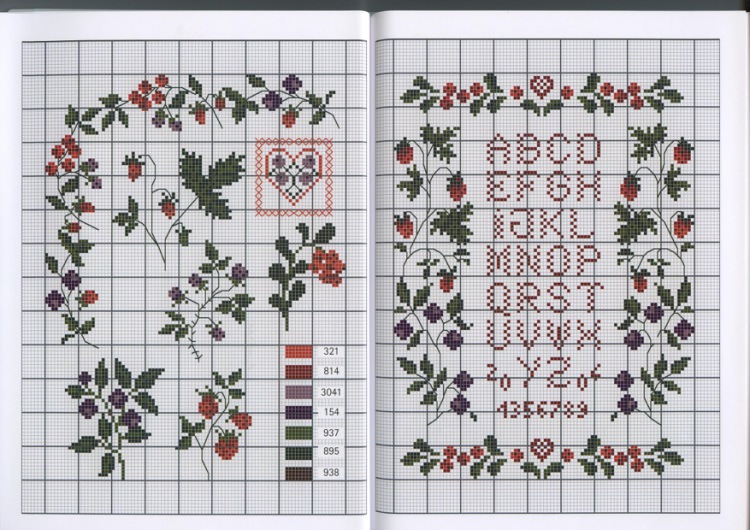 321
814
3041
154
937
895
938
ABCD
EFGH
IJKL
MNOP
QRST
UVWX
YZ